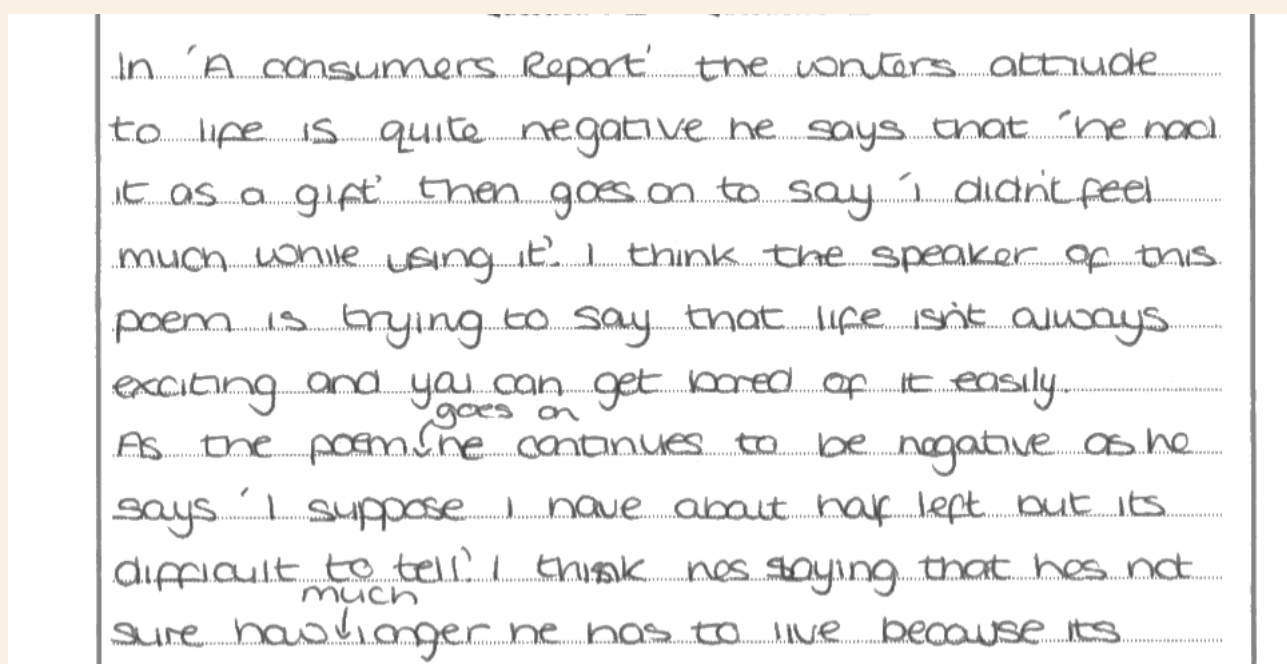 In 'A consumers Report' the writers attitude
to life is quite negative he says that 'he had
it as a gift' then goes on to say 'i didn't feel
much while using it'. I think the speaker of this
poem is trying to say that life isn't always
exciting and you can get bored of it easily.
As the poem goes on he continues to be negative as he
says 'I suppose I have about half left but its
difficult to tell'. I think hes saying that hes not
sure how much longer he has to live because its